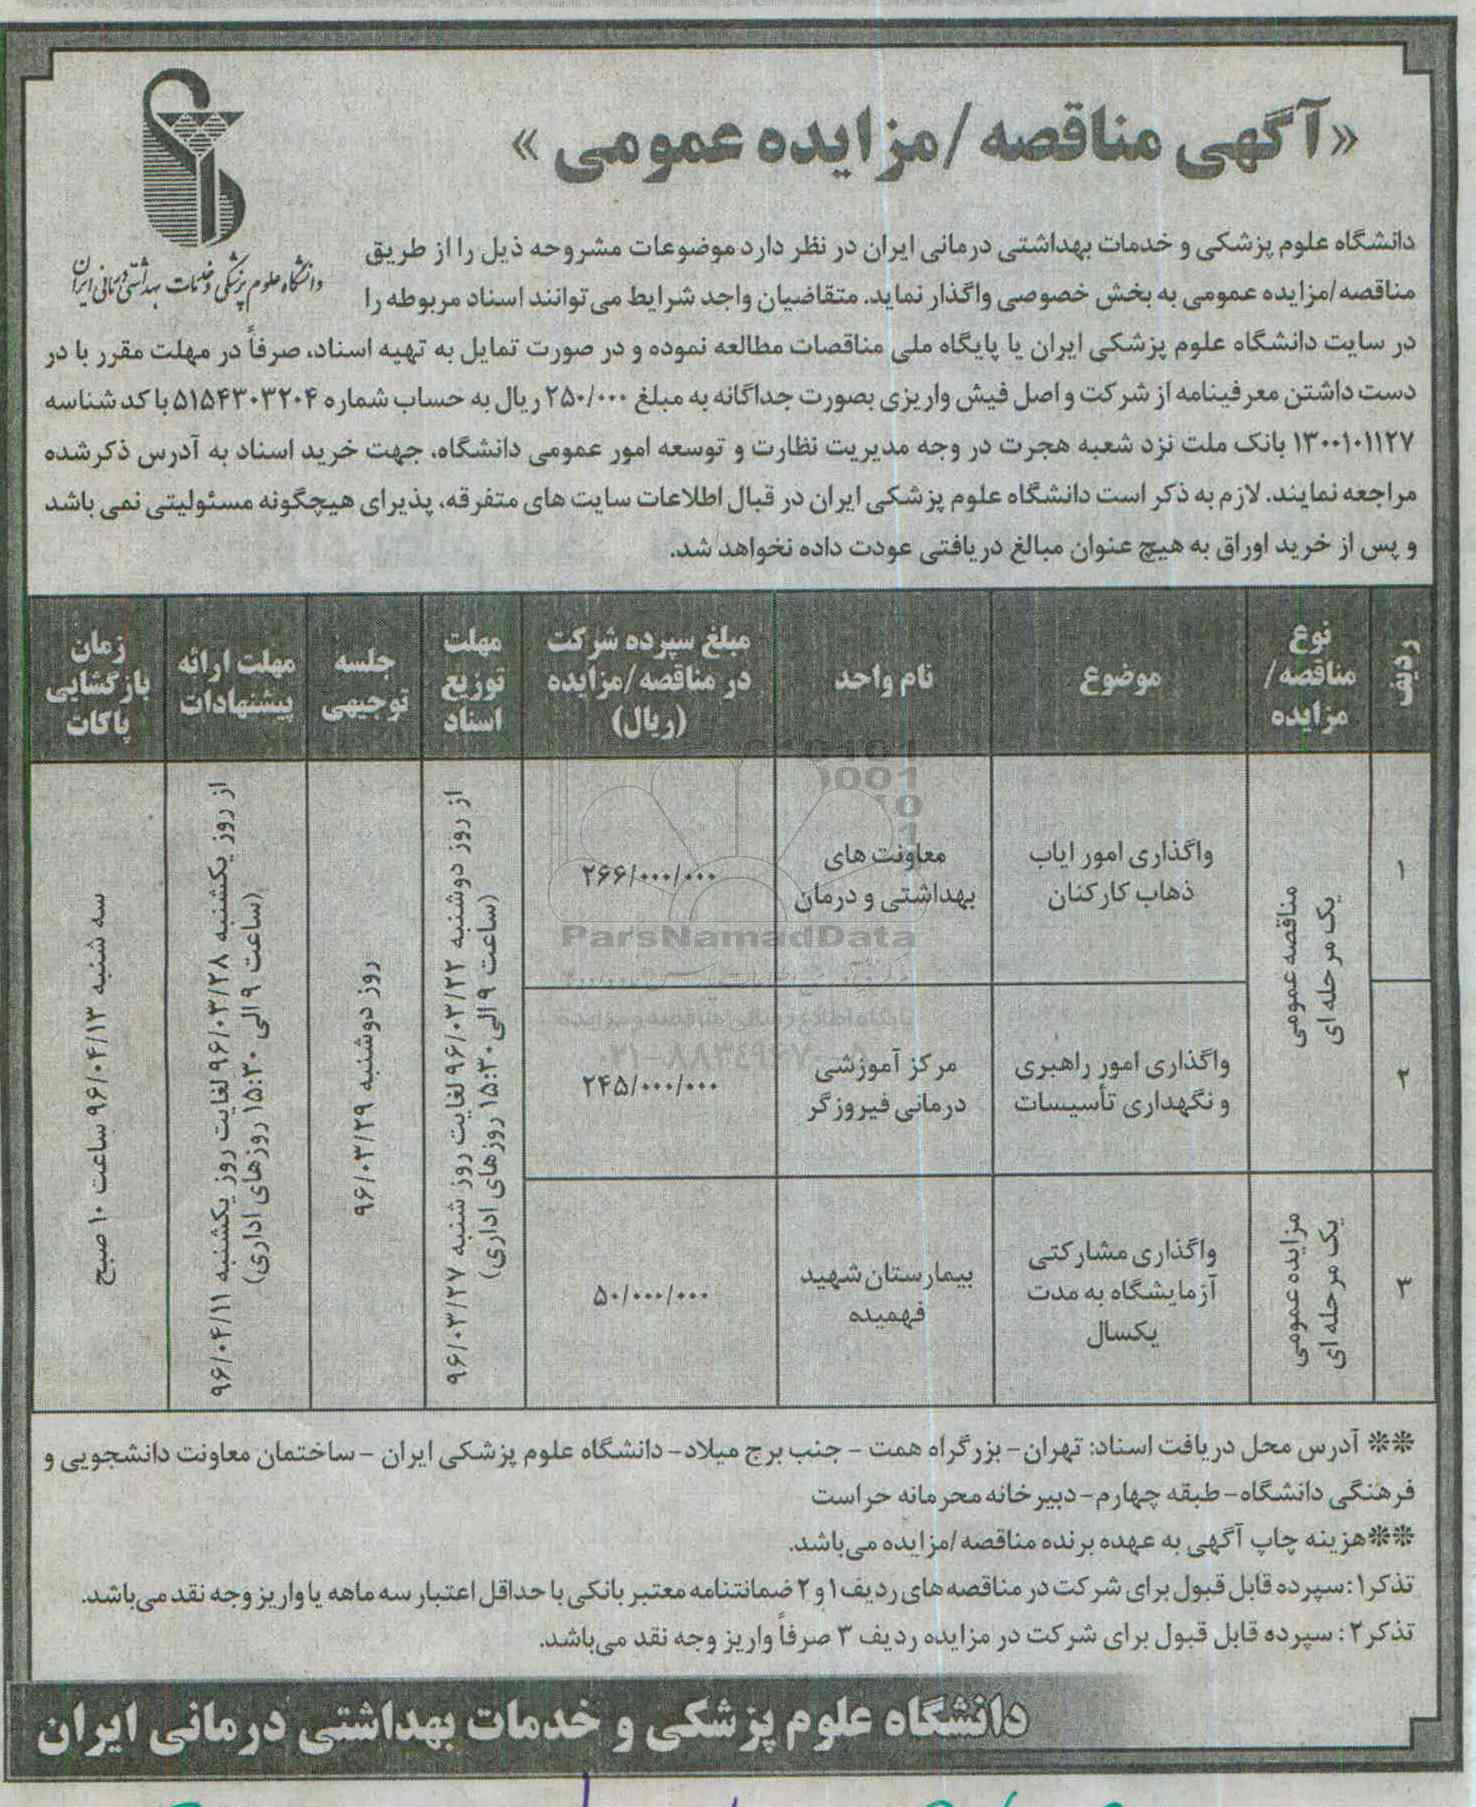 «آگهی مناقصه /مزایده عمومی »
دانشگاه علوم پزشکی و خدمات بهداشتی درمانی ایران
دانشگاه علوم پزشکی و خدمات بهداشتی درمانی ایران در نظر دارد موضوعات مشروحه ذیل را از طریق
مناقصه/مزایده عمومی به بخش خصوصی واگذار نماید. متقاضیان واجد شرایط می توانند اسناد مربوطه را
در سایت دانشگاه علوم پزشکی ایران یا پایگاه ملی مناقصات مطالعه نموده و در صورت تمایل به تهیه اسناد، صرفاً در مهلت مقرر با در
دست داشتن معرفینامه از شرکت و اصل فیش واریزی بصورت جداگانه به مبلغ ۲۵۰/۰۰۰ ریال به حساب شماره ۵۱۵۴۳۰۳۲۰۴ با کد شناسه
۱۳۰۰۱۰۱۱۲۷ بانک ملت نزد شعبه هجرت در وجه مدیریت نظارت و توسعه امور عمومی دانشگاه، جهت خرید اسناد به آدرس ذکرشده
مراجعه نمایند. لازم به ذکر است دانشگاه علوم پزشکی ایران در قبال اطلاعات سایت های متفرقه، پذیرای هیچگونه مسئولیتی نمی باشد
و پس از خرید اوراق به هیچ عنوان مبالغ دریافتی عودت داده نخواهد شد.
ردیف
نوع
مناقصه/
مزایده
موضوع
نام واحد
مبلغ سپرده شرکت
در مناقصه/مزایده
(ریال)
مهلت
توزیع
اسناد
جلسه
توجیهی
مهلت ارائه
پیشنهادات
زمان
بازگشایی
پاکات
۱
مناقصه عمومی
یک مرحله ای
واگذاری امور ایاب
ذهاب کارکنان
معاونت های
بهداشتی و درمان
۲۶۶/۰۰۰/۰۰۰
از روز دوشنبه ۹۶/۰۳/۲۲ لغایت روز شنبه ۹۶/۰۳/۲۷
(ساعت ۹ الی ۱۵:۳۰ روزهای اداری)
روز دوشنبه ۹۶/۰۳/۲۹
از روز یکشنبه ۹۶/۰۳/۲۸ لغایت روز یکشنبه ۹۶/۰۴/۱۱
(ساعت ۹ الی ۱۵:۳۰ روزهای اداری)
سه شنبه ۹۶/۰۴/۱۳ ساعت ۱۰ صبح
۲
واگذاری امور راهبری
و نگهداری تأسیسات
مرکز آموزشی
درمانی فیروزگر
۲۴۵/۰۰۰/۰۰۰
۳
مزایده عمومی
یک مرحله ای
واگذاری مشارکتی
آزمایشگاه به مدت
یکسال
بیمارستان شهید
فهمیده
۵۰/۰۰۰/۰۰۰
ParsNamadData
پایگاه اطلاع رسانی مناقصه و مزایده
۰۲۱-۸۸۳۴۹۶۷۰-۵
** آدرس محل دریافت اسناد: تهران- بزرگراه همت - جنب برج میلاد- دانشگاه علوم پزشکی ایران -ساختمان معاونت دانشجویی و
فرهنگی دانشگاه- طبقه چهارم- دبیرخانه محرمانه حراست
**هزینه چاپ آگهی به عهده برنده مناقصه/مزایده می‌باشد.
تذکر۱: سپرده قابل قبول برای شرکت در مناقصه های ردیف ۱ و ۲ ضمانتنامه معتبر بانکی با حداقل اعتبار سه ماهه یا واریز وجه نقد می‌باشد.
تذکر۲: سپرده قابل قبول برای شرکت در مزایده ردیف ۳ صرفاً واریز وجه نقد می‌باشد.
دانشگاه علوم پزشکی و خدمات بهداشتی درمانی ایران